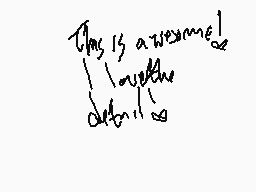 This is awesome!
love the
details